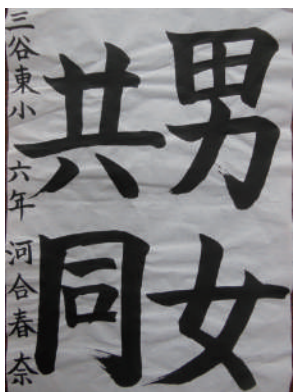 男女
共同
三谷東小 六年 河合春奈